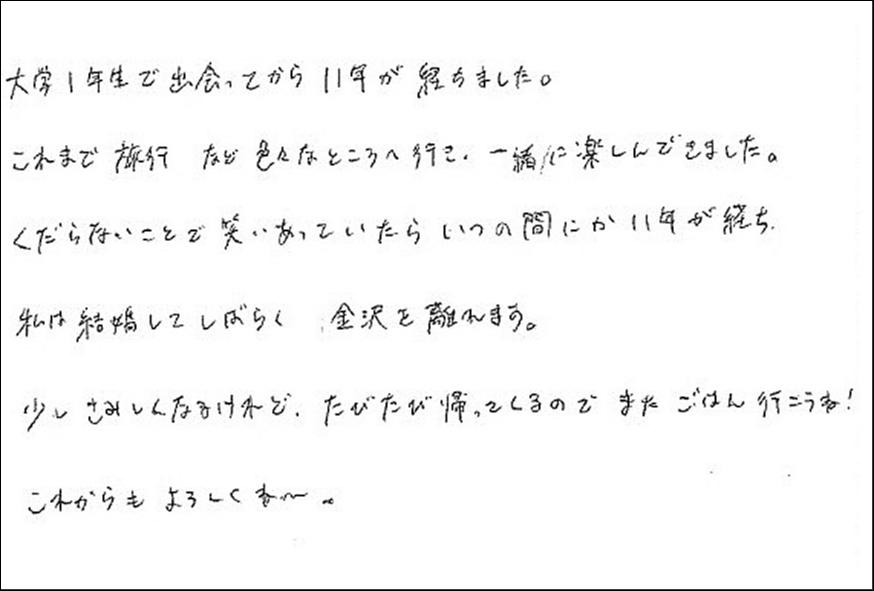 大学1年生で出会ってから11年が経ちました。
これまで旅行など色々なところへ行き、一緒に楽しんできました。
くだらないことで笑いあっていたらいつの間にか11年が経ち、
私は結婚してしばらく金沢を離れます。
少しさみしくなるけれど、たびたび帰ってくるのでまたごはん行こうね!
これからもよろしくね〜。